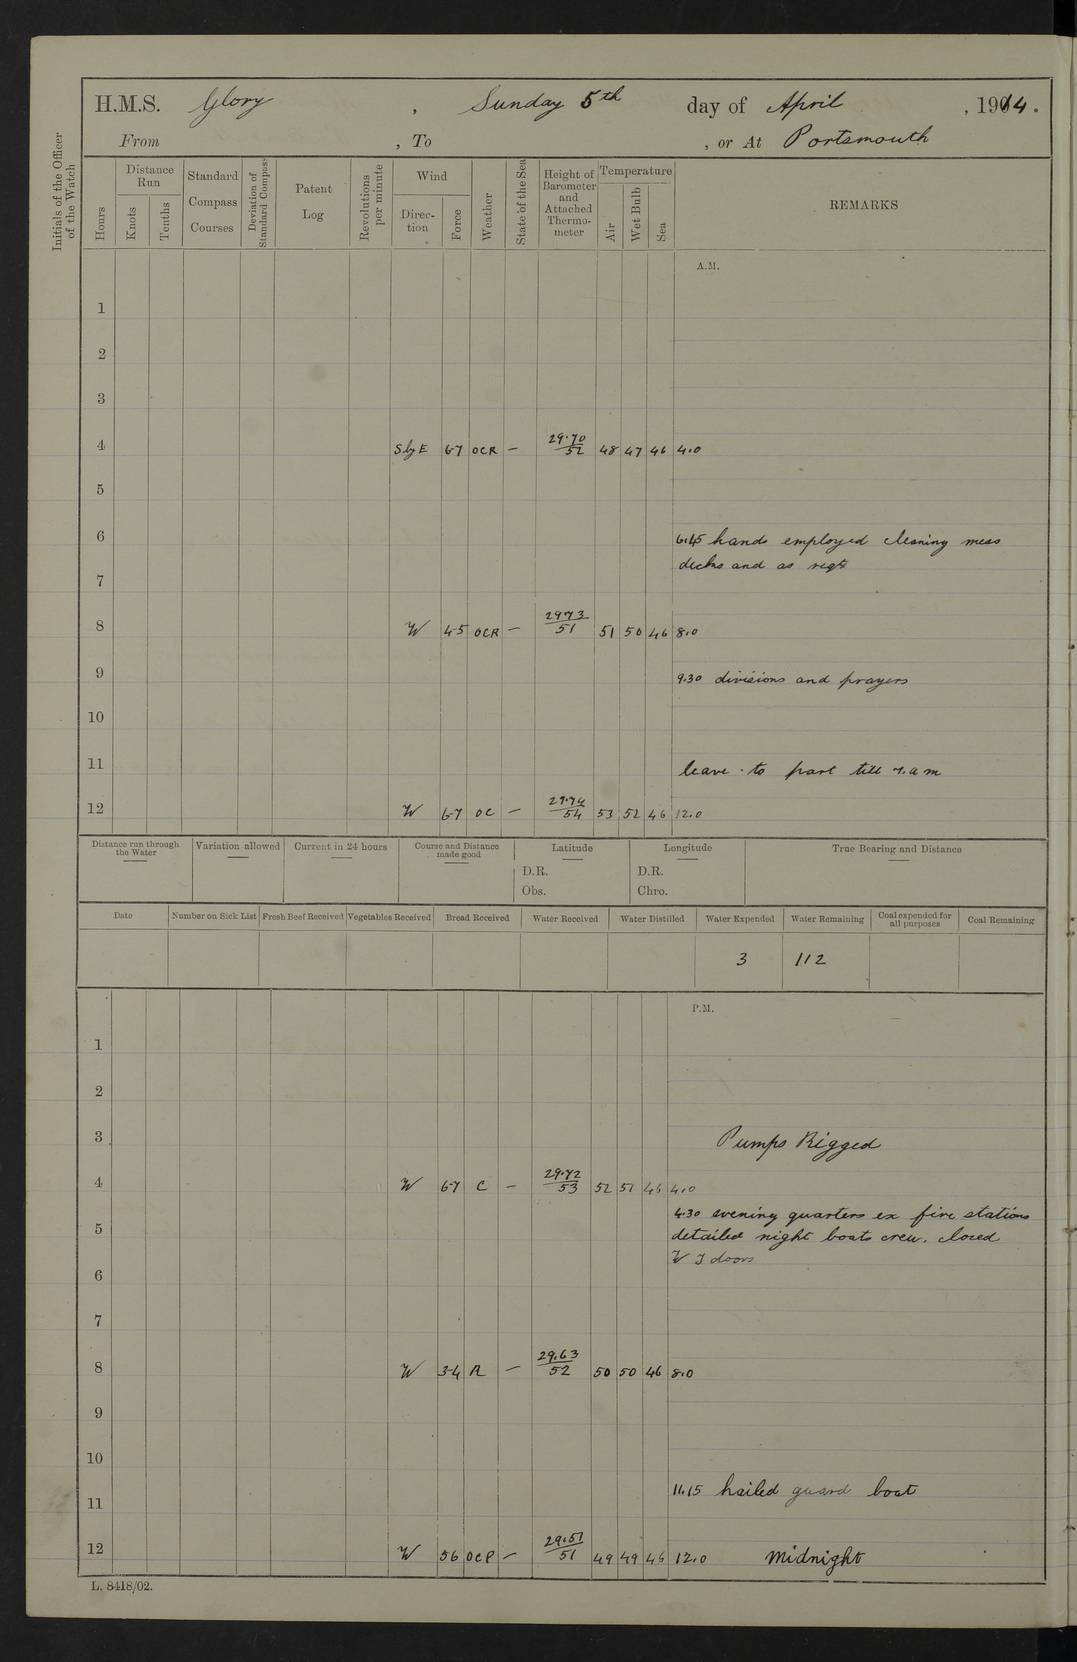 H.M.S. Glory , Sunday 5th day of April , 1914.
From , To , or At Portsmouth
Initials of the Officer of the Watch
Hours
Distance Run
Knots
Tenths
Standard Compass Courses
Deviation of Standard Compass
Patent Log
Revolutions per minute
Wind
Direction
Force
Weather
State of the Sea
Height of Barometer and Attached Thermometer
Temperature
Air
Wet Bulb
Sea
REMARKS
A.M.
1
2
3
4 S by E 6-7 OCR — 29.70/52 48 47 46 4.0
5
6 6.45 hands employed cleaning mess
decks and as reqd
7
8 W 4-5 OCR — 2973/51 51 50 46 8.0
9 9.30 divisions and prayers
10
11 leave to part till 7. a m
12 W 6-7 OC — 29.74/54 53 52 46 12.0
Distance run through the Water
Variation allowed
Current in 24 hours
Course and Distance made good
Latitude
D.R.
Obs.
Longitude
D.R.
Chro.
True Bearing and Distance
Date
Number on Sick List
Fresh Beef Received
Vegetables Received
Bread Received
Water Received
Water Distilled
Water Expended
Water Remaining
Coal expended for all purposes
Coal Remaining
3 112
P.M.
1
2
3 Pumps Rigged
4 W 6-7 C — 29.72/53 52 51 46 4.0
4.30 evening quarters ex fire stations
5 detailed night boats crew. closed
W T doors
6
7
8 W 3-4 R — 29.63/52 50 50 46 8.0
9
10
11.15 hailed guard boat
11
12 W 56 OCP — 29.51/51 49 49 46 12.0 Midnight
L. 8418/02.